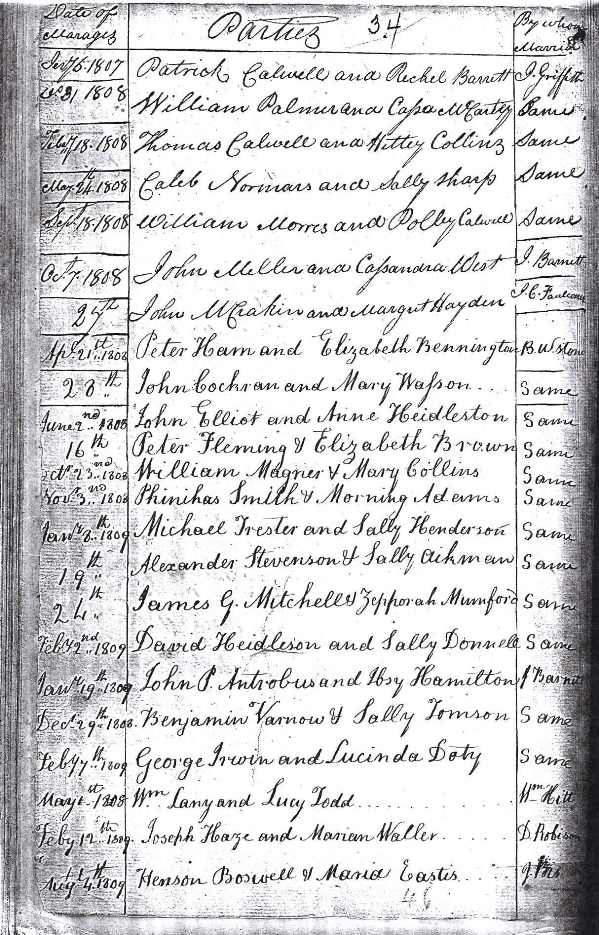 Date of Parties 34 By whom
Marages Married
5 1807 Patrick Calwell and Rechel Barrett J. Griffith
1808 William Palmer and Cassa McCartey Same
Feby 18 1808 Thomas Calwell and Hettey Collinz Same
May 24th 1808 Caleb Normars and Sally Sharp Same
Sept 18 1808 William Morres and Polley Calwell Same
Oct 7 1808 John Meller and Cassandra West J. Barnett
27th John McCrakin and Margret Hayden J. C.
Apl 21st 1808 Peter Ham and Elizabeth Bennington B. W Stone
28th John Cochran and Mary Wasson Same
June 2nd 1808 John Elliot and Anne Heidleston Same
16th Peter Fleming & Elizabeth Brown Same
Oct 23rd 1808 William Magner & Mary Collins Same
Novr 3rd 1808 Phinihas Smith & Morning Adams Same
Jany 8th 1809 Michael Trester and Sally Henderson Same
19th Alexander Stevenson & Sally Aikman Same
24th James G. Mitchell & Zepporah Mumford Same
Feby 2nd 1809 David Heidleson and Sally Donnell Same
Jany 19th 1809 John P. Antrobus and Ibsy Hamilton J Barnet
Decr 29th 1808 Benjamin Varnow & Sally Tomson Same
Feby 7th 1809 George Irwin and Lucinda Doty Same
May 1st 1808 Wm Lany and Lucy Todd Wm Hitt
Feby 12th 1809 Joseph Haze and Marian Waller D. Robison
4th 1809 Henson Boswell & Maria Eastis
46